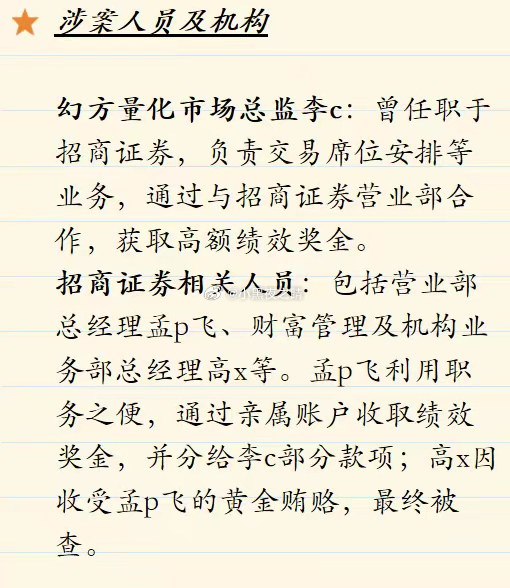 涉案人员及机构
幻方量化市场总监李c：曾任职于
招商证券，负责交易席位安排等
业务，通过与招商证券营业部合
作，获取高额绩效奖金。
招商证券相关人员：包括营业部
总经理孟p飞、财富管理及机构业
务部总经理高x等。孟p飞利用职
务之便，通过亲属账户收取绩效
奖金，并分给李c部分款项；高x因
收受孟p飞的黄金贿赂，最终被
查。